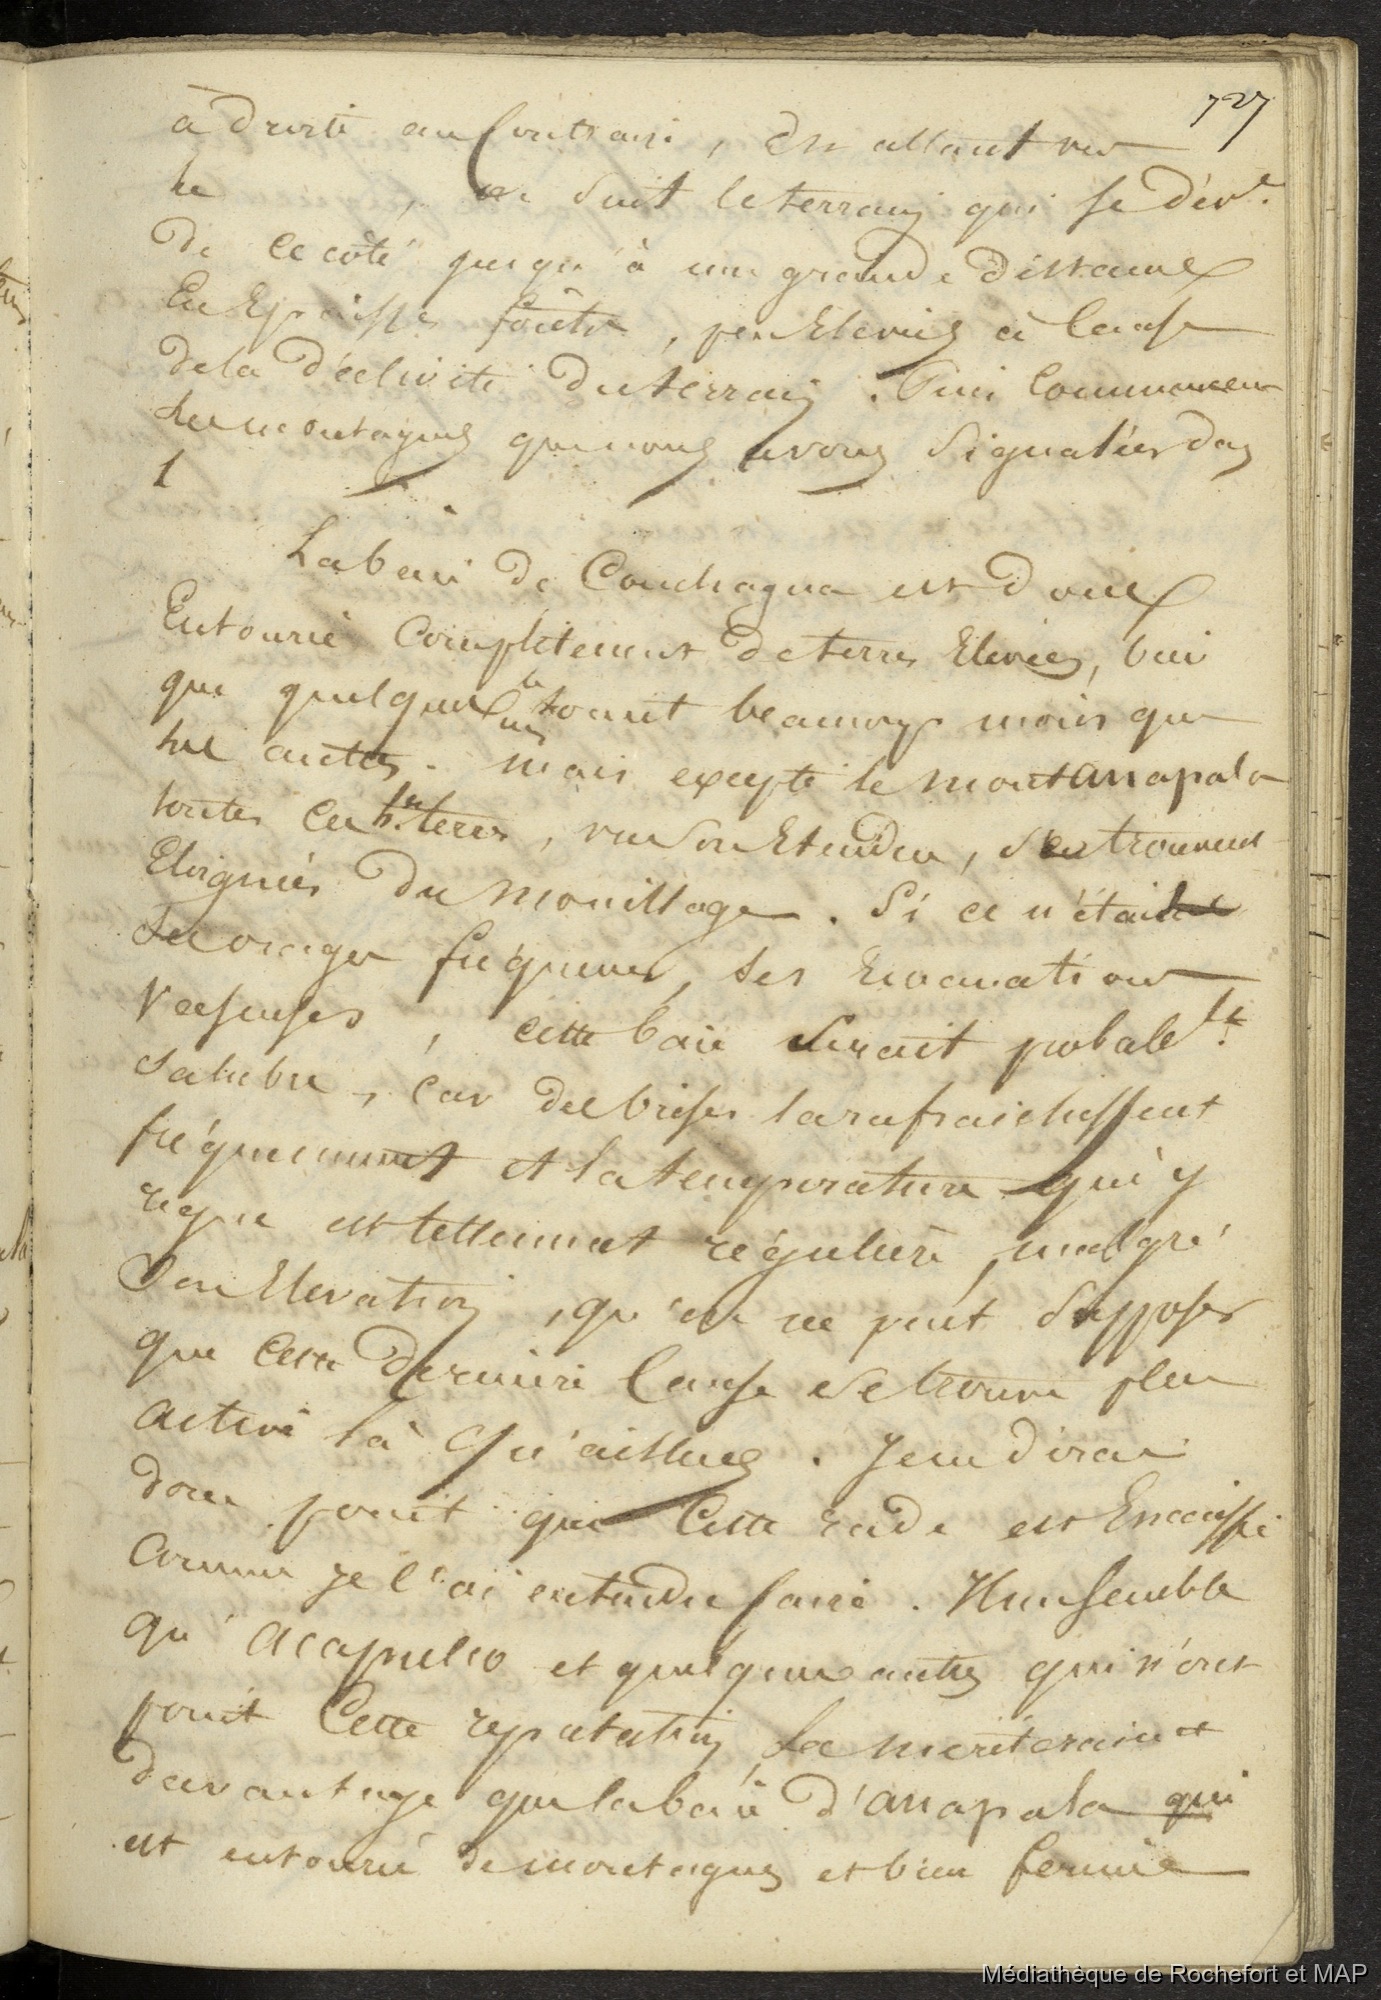 727
à droite au Contraire, En allant vers
le , on suit le terrain qui se dév.e
de ce côté jusqu'à une grande distance
En Epaisses forêts, peu Elevées à cause
de la déclivité du terrain. Puis Commencent
les montagnes que nous avons Signalées dans
1
La baie de Conchagua est donc
Entourée Complètement de terres Elevées, bien
que quelques unes le soient beaucoup moins que
les autres. mais excepté le mont amapala
toutes ces h.tes terres, vu son Etendue, s'en trouvent
Eloignées du mouillage. Si ce n'était
Ses orages fréquents, ses Emanations
Vaseuses, cette baie serait probabl.t
salubre, car des brises la rafraichissent
fréquemment et la température qui y
regne est tellement régulière, malgré
Son Elevation, qu'on ne peut Supposer
que Cette dernière Cause se trouve plus
active là qu'ailleurs. Je ne dirai
donc point que Cette rade est Encaissée
Comme je l'ai entendu faire. Il me semble
qu'acapulco et quelques autres qui n'ont
point Cette reputation, la mériteraient
davantage que la baie d'amapala qui
est entourée de montagnes et bien fermée
Médiathèque de Rochefort et MAP